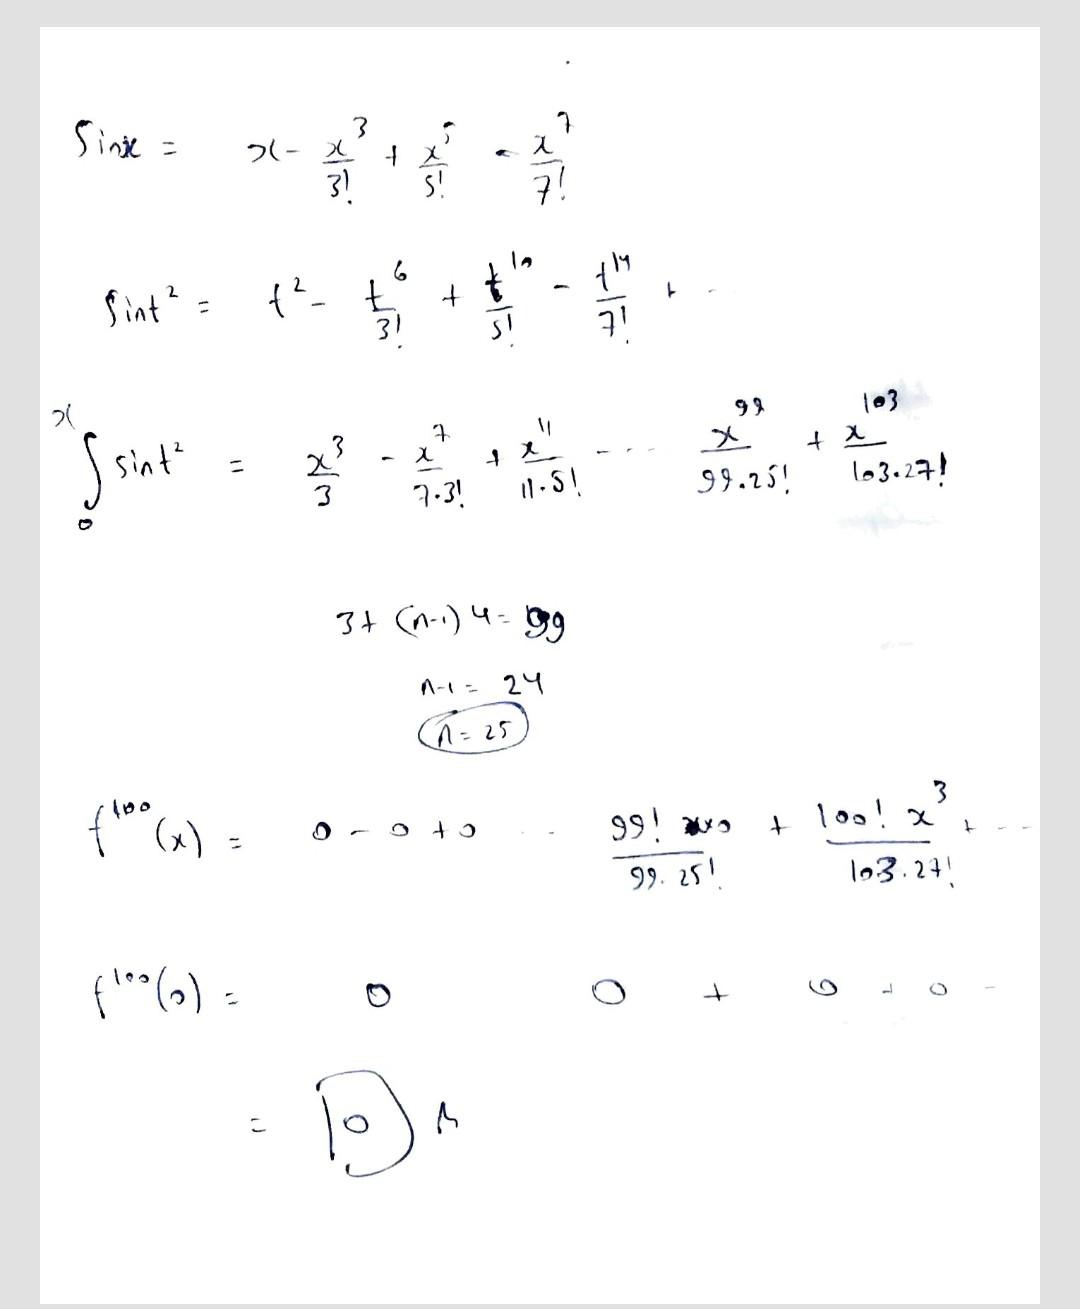 Sinx = x - x^3/3! + x^5/5! - x^7/7!
Sint^2 = t^2 - t^6/3! + t^10/5! - t^14/7! + ..
∫_0^x sint^2 = x^3/3 - x^7/7·3! + x^11/11·5! ---- x^99/99·25! + x^103/103·27!
3+ (n-1) 4 = 99
n-1 = 24
n = 25
f^100(x) = 0 - 0 + 0 -- 99! × 0/99·25! + 100! x^3/103·27! + ---
f^100(0) = 0 0 + 0 + 0 -
= 0